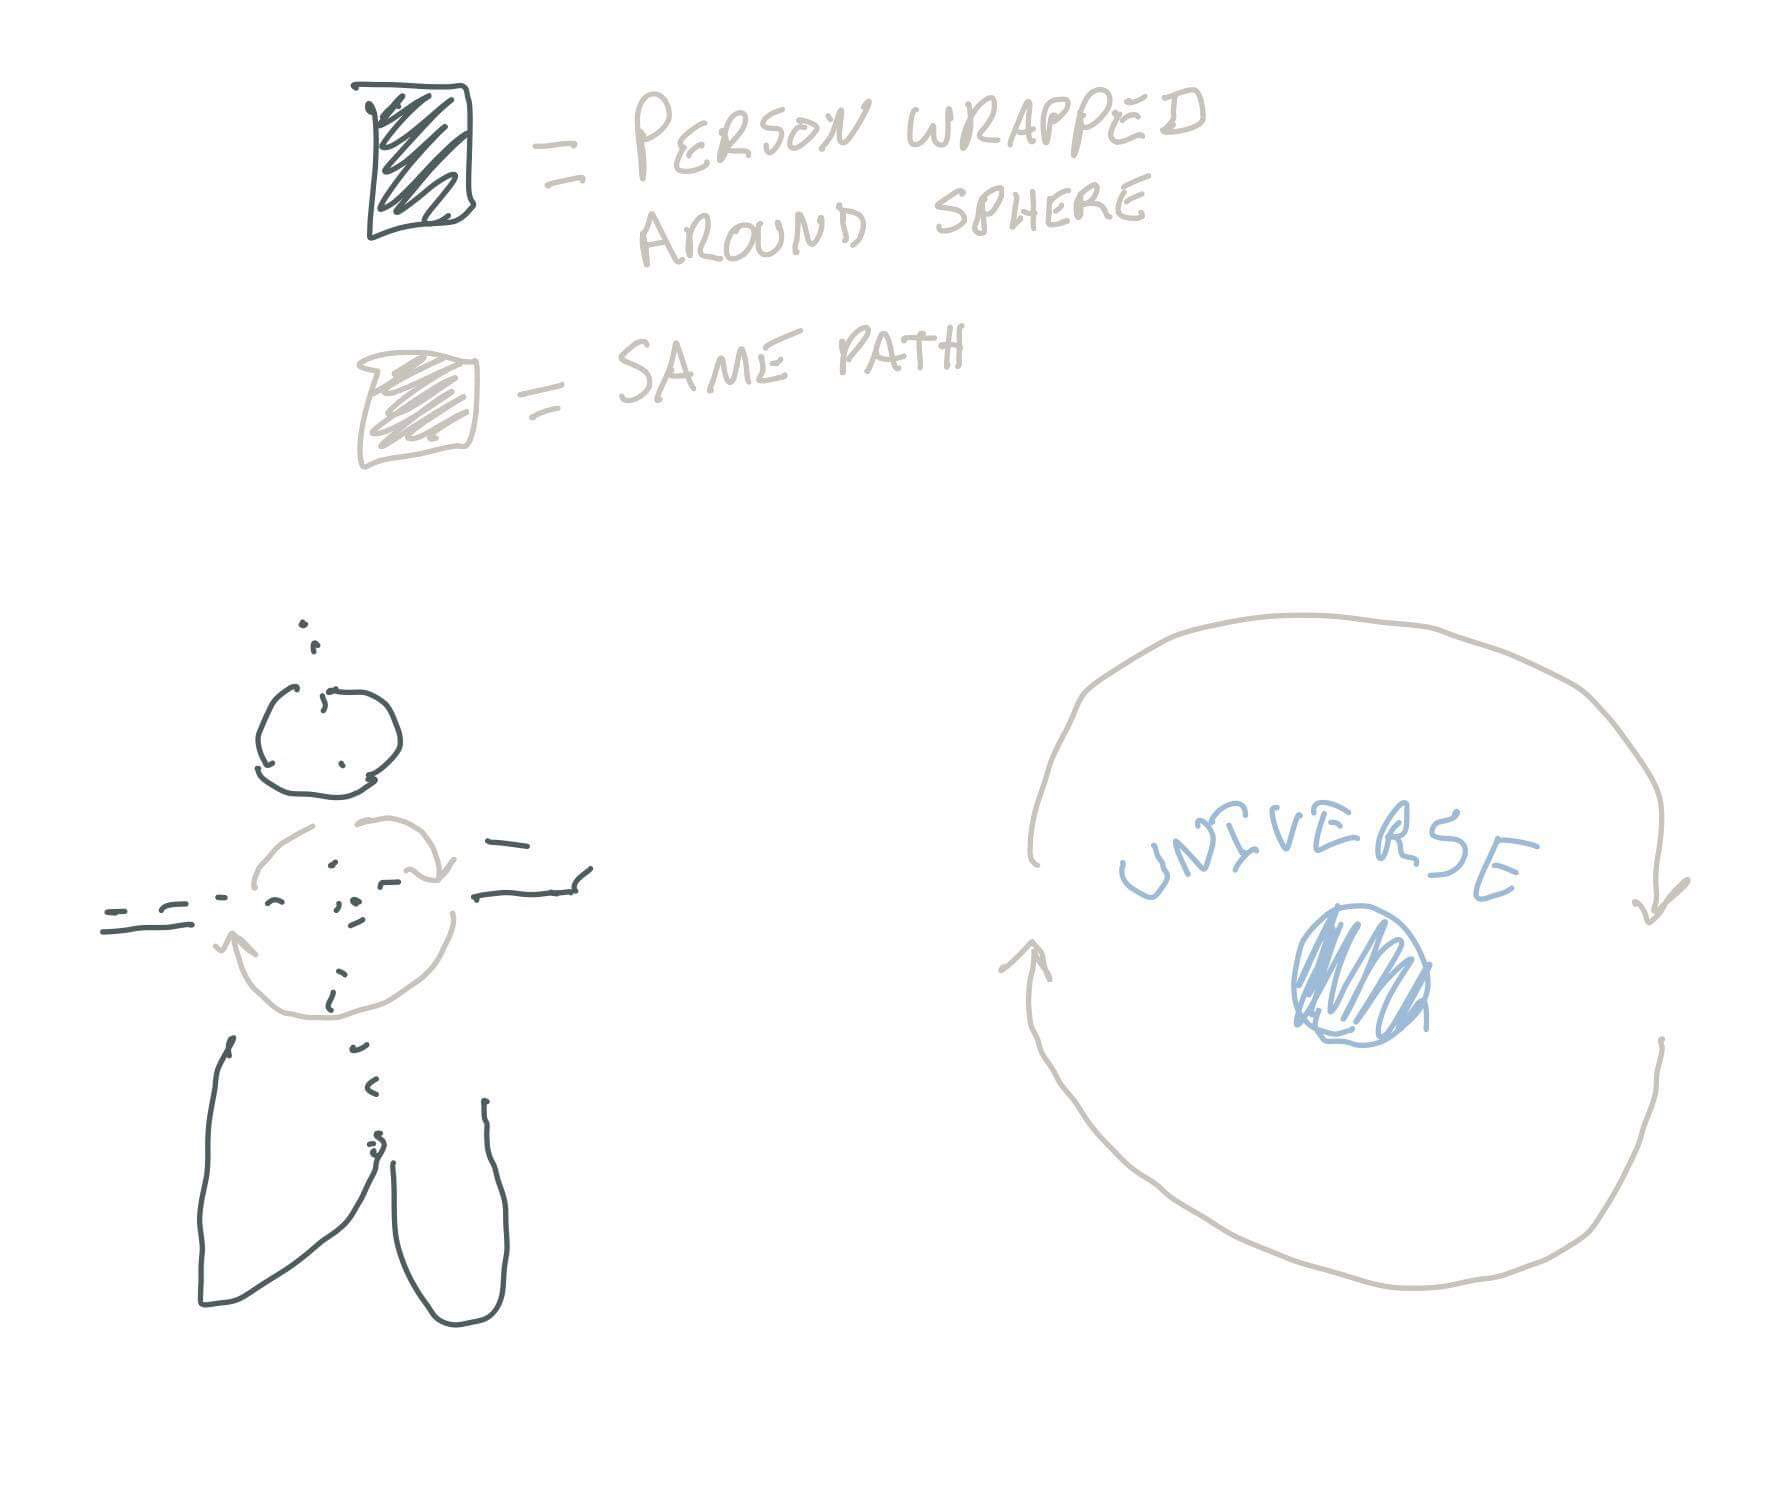 = PERSON WRAPPED
AROUND SPHERE
= SAME PATH
UNIVERSE